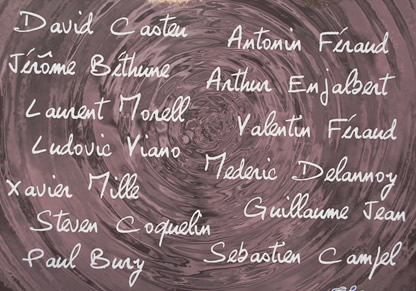 David Casteu
Antonin Féraud
Jérôme Béthune
Arthur Enjalbert
Laurent Morell
Valentin Féraud
Ludovic Viano
Mederic Delannoy
Xavier Mille
Guillaume Jean
Steven Coquelin
Sebastien Campel
Paul Bury